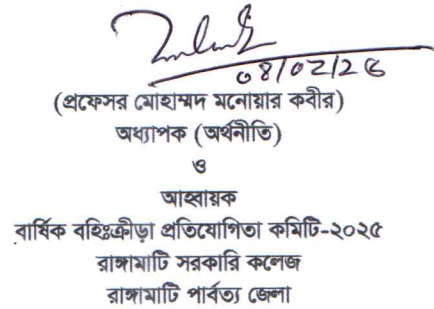 ০৪/০২/২৫
(প্রফেসর মোহাম্মদ মনোয়ার কবীর)
অধ্যাপক (অর্থনীতি)
ও
আহ্বায়ক
বার্ষিক বহিঃক্রীড়া প্রতিযোগিতা কমিটি-২০২৫
রাঙ্গামাটি সরকারি কলেজ
রাঙ্গামাটি পার্বত্য জেলা